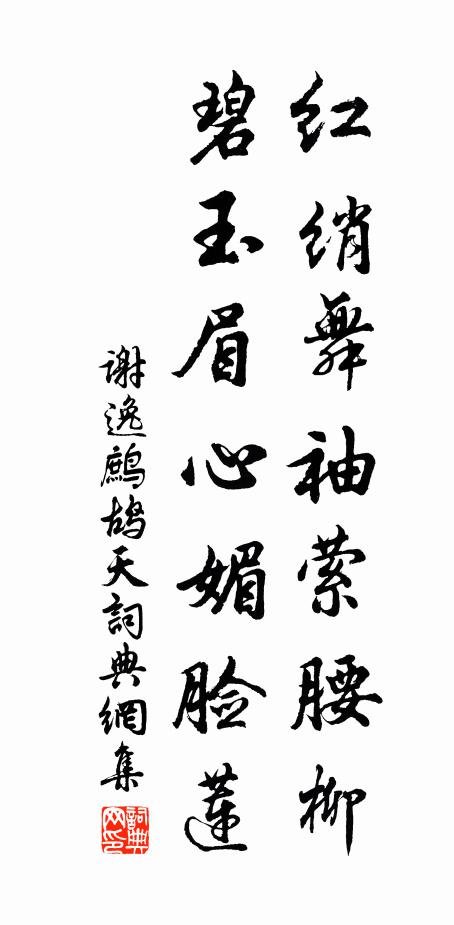 红绡舞袖萦腰柳
碧玉眉心媚脸莲
谢逸鹧鸪天詞典網集
詞典网印